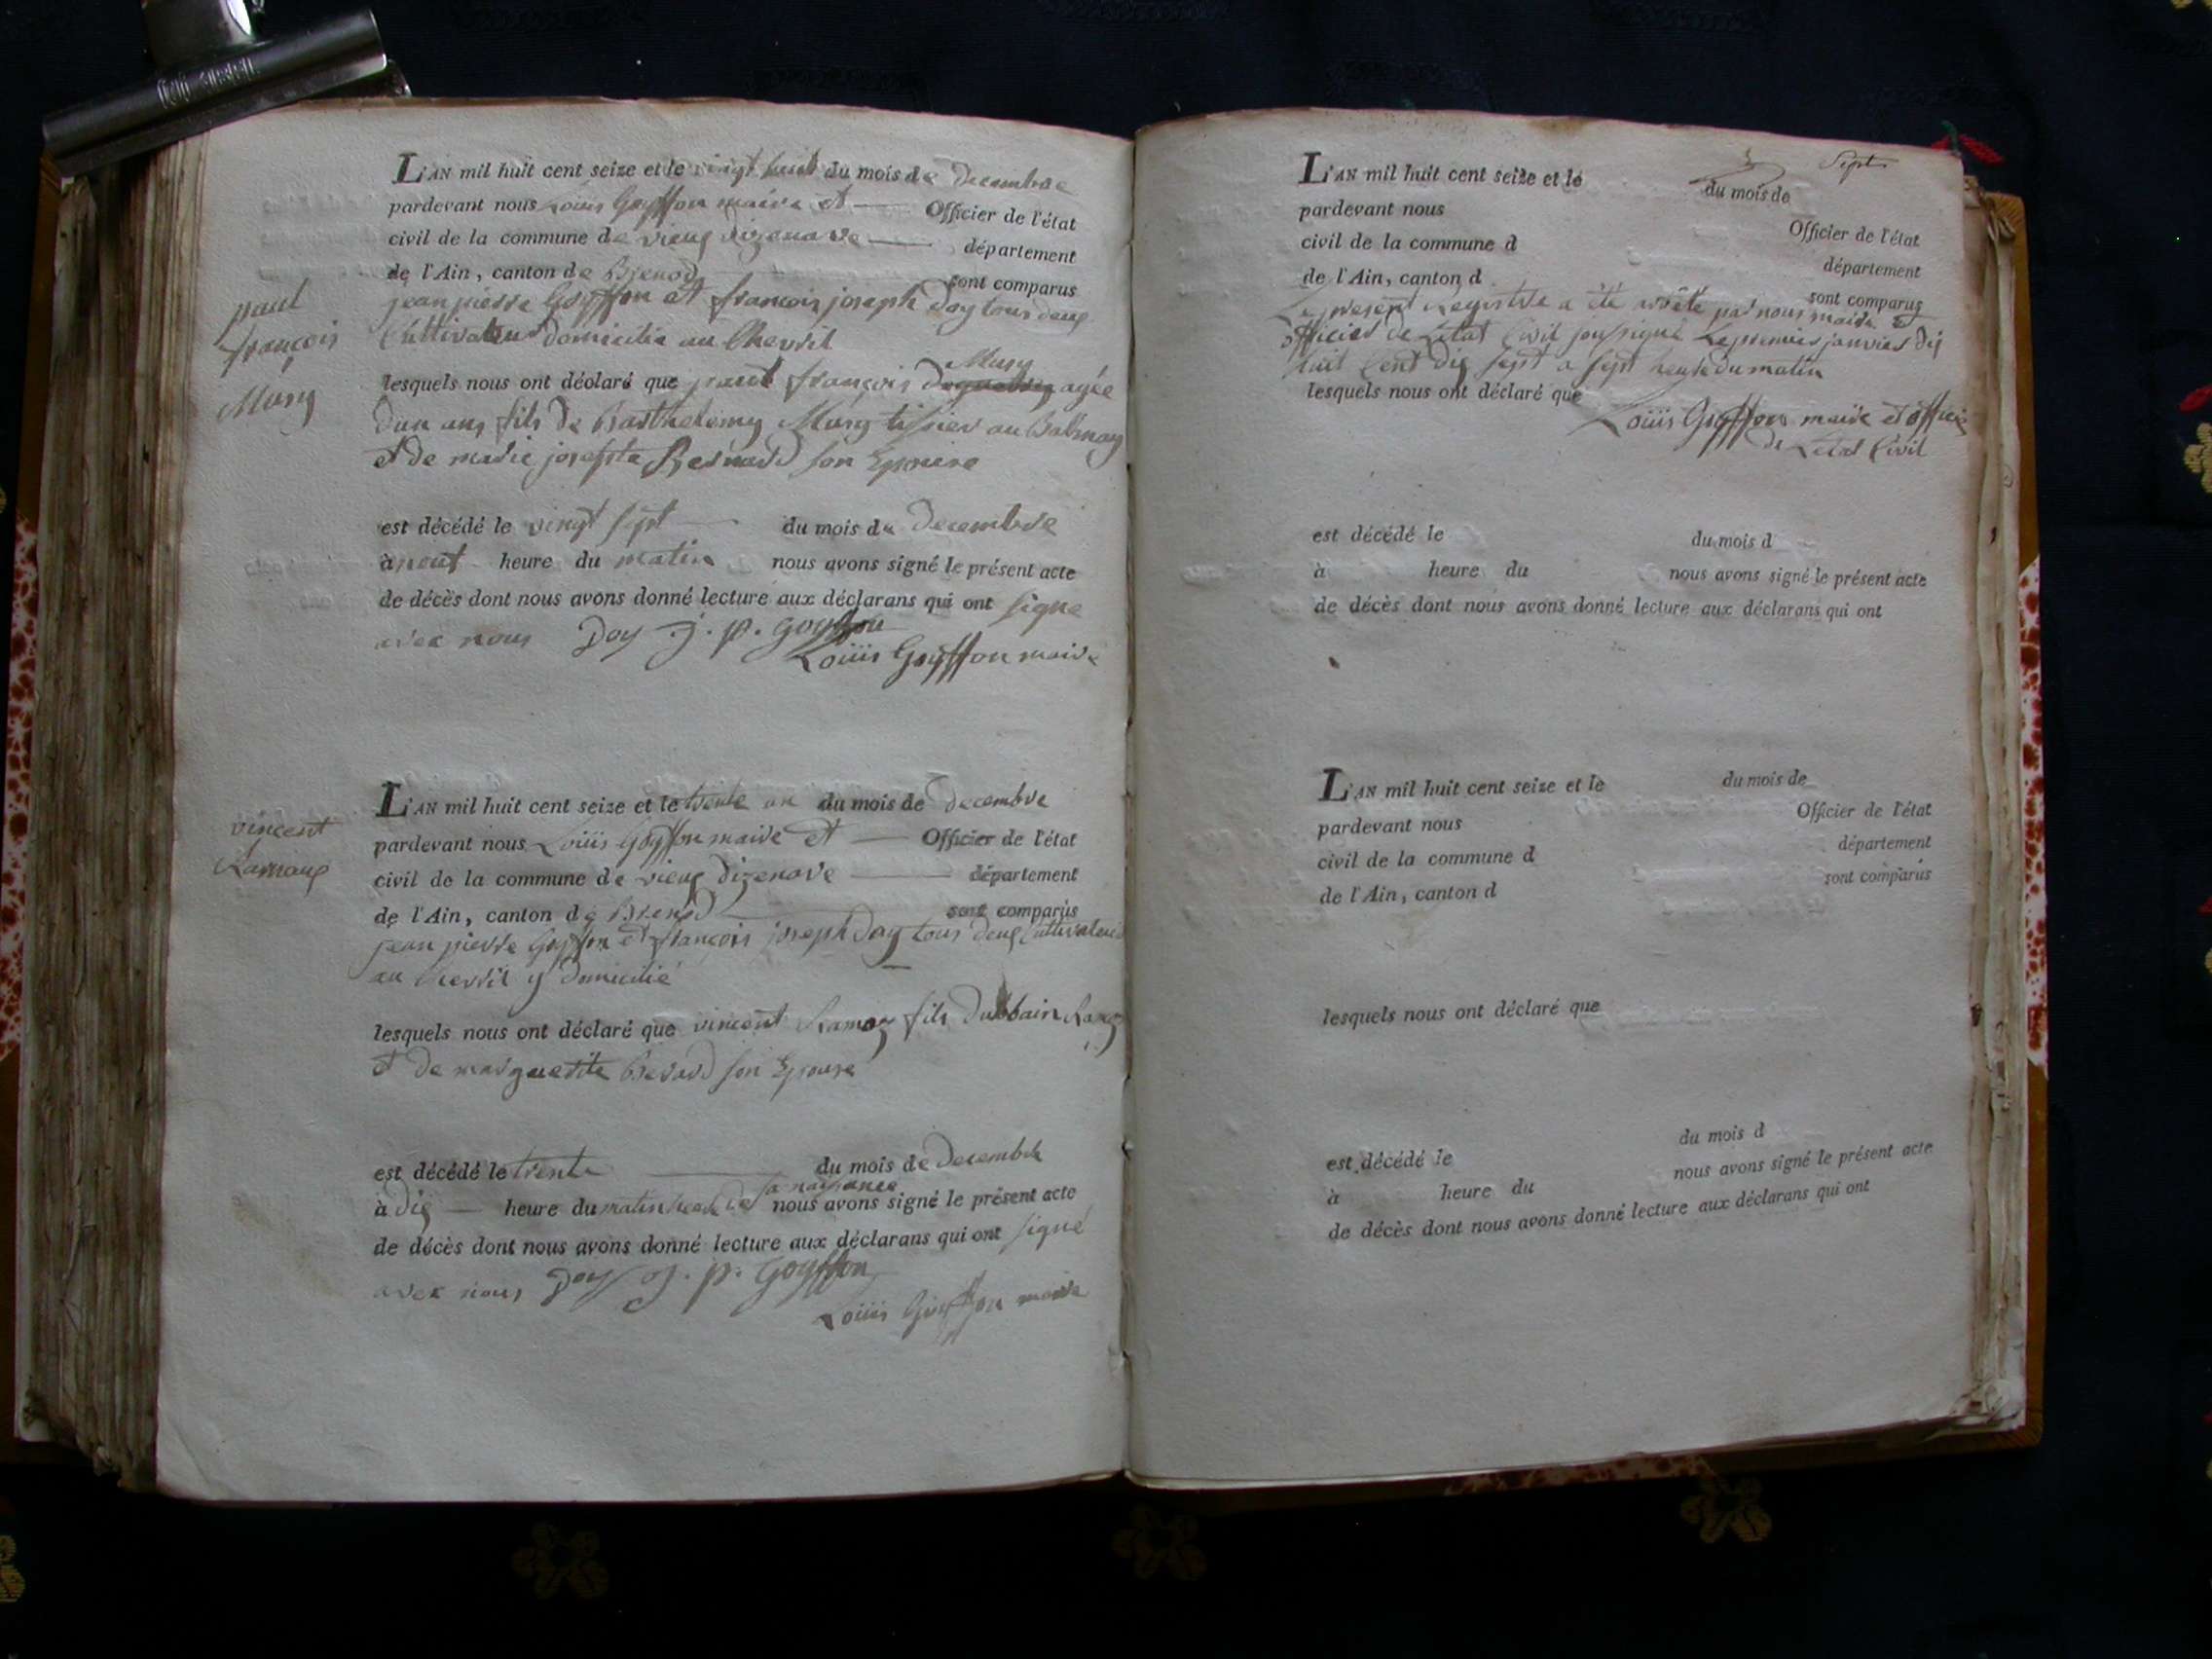 L'AN mil huit cent seize et le vingt huit du mois de decembre
pardevant nous Louis Goyffon maire et Officier de l'état
civil de la commune de vieux dizenave département
de l'Ain, canton de Brenod sont comparus
jean pierre Goyffon et francois joseph Doy tous deux
Cultivateur domicilié au Chevril
paul
françois
Musy
lesquels nous ont déclaré que paul françois Musy agée
dun ans fils de Barthelemy Musy tissier au Balmay
et de marie josephte Bernard son Epouse
est décédé le vingt sept du mois de decembre
à neuf heure du matin nous avons signé le présent acte
de décès dont nous avons donné lecture aux déclarans qui ont signe
avec nous Doy J. p. Goyffon
Louis Goyffon maire
vincent
Ramaux
L'AN mil huit cent seize et le trente un du mois de decembre
pardevant nous Louis Goyffon maire et Officier de l'état
civil de la commune de vieux dizenave département
de l'Ain, canton de Brenod sont comparus
jean pierre Goyffon et françois joseph Doy tous deux Cultivateur
au Chevril y domicilié
lesquels nous ont déclaré que vincent Ramoz fils Dubbain
et de marguerite Berard son Epouse
est décédé le trente du mois de decembre
à dix heure du matin sa naissance nous avons signé le présent acte
de décès dont nous avons donné lecture aux déclarans qui ont signé
avec nous Doy J. p. Goyffon
Louis Goyffon maire
Sept
L'AN mil huit cent seize et le du mois de
pardevant nous Officier de l'état
civil de la commune d département
de l'Ain, canton d sont comparus
Le present Registre a été arrêté par nous maire et
officier de Letat Civil soussigné Le premier janvier dix
huit Cent dix sept a sept heure du matin
lesquels nous ont déclaré que
Louis Goyffon maire et officier
de Letat Civil
est décédé le du mois d
à heure du nous avons signé le présent acte
de décès dont nous avons donné lecture aux déclarans qui ont
L'AN mil huit cent seize et le du mois de
pardevant nous Officier de l'état
civil de la commune d département
de l'Ain, canton d sont comparus
lesquels nous ont déclaré que
est décédé le du mois d
à heure du nous avons signé le présent acte
de décès dont nous avons donné lecture aux déclarans qui ont